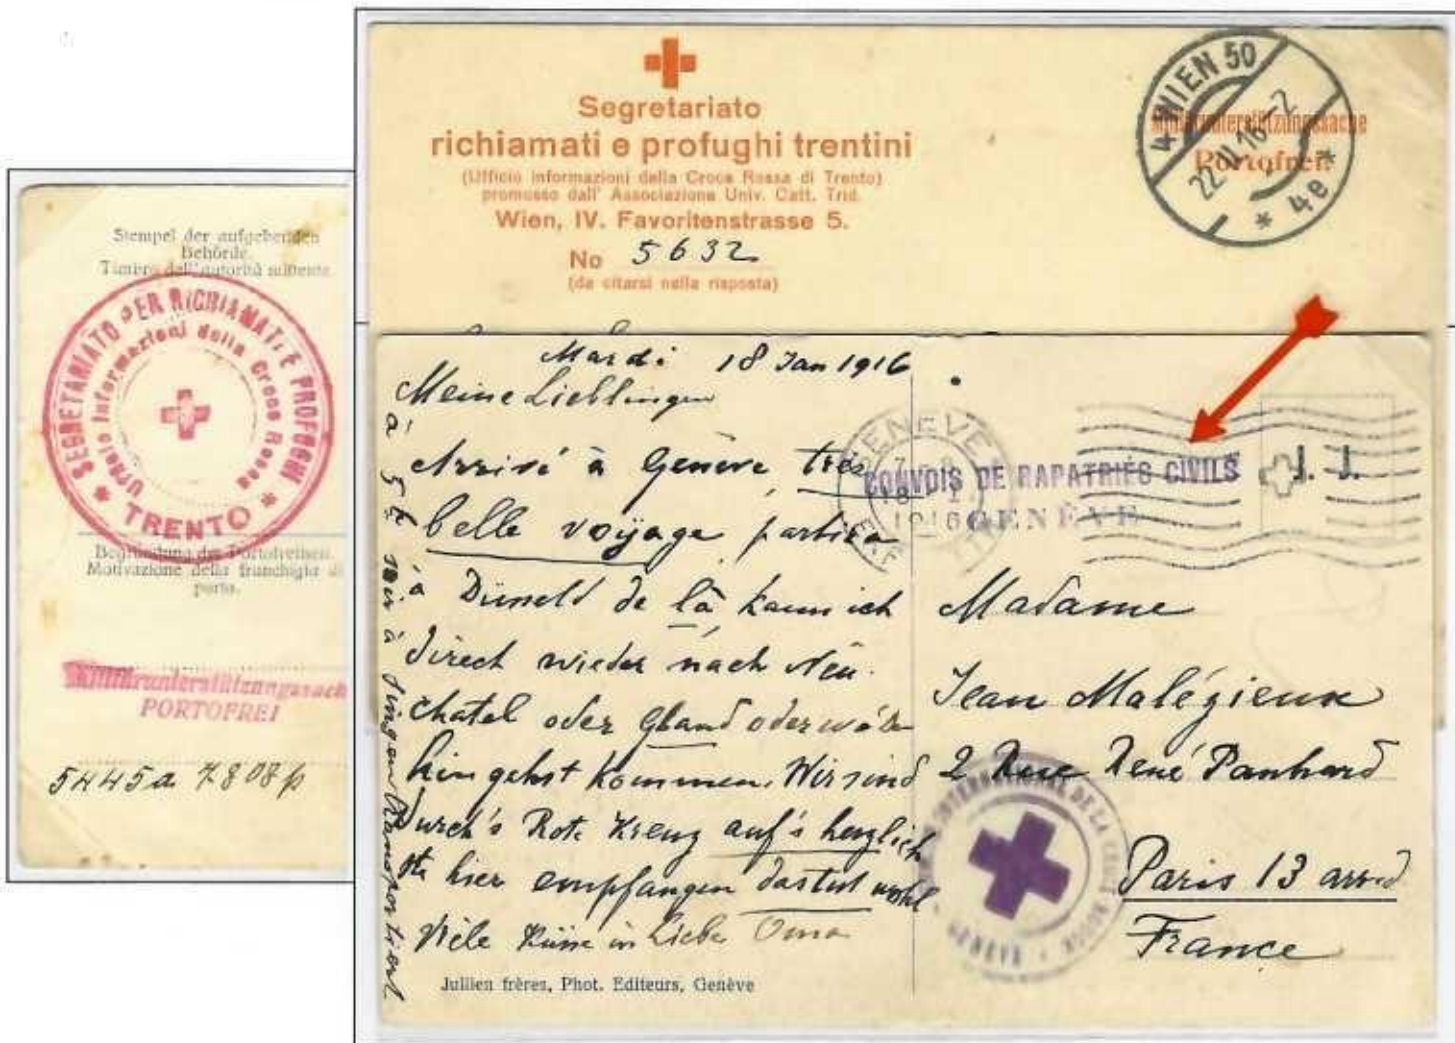 Stempel der aufgebenden
Behörde.
Timbro dell'autorità mittente.
* SEGRETARIATO PER RICHIAMATI E PROFUGHI *
Ufficio Informazioni della Croce Rossa
TRENTO
Begründung der Portofreiheit.
Motivazione della franchigia di
porto.
Militärunterstützungssache
PORTOFREI
5445a 7808p
Segretariato
richiamati e profughi trentini
(Ufficio informazioni della Croce Rossa di Trento)
promosso dall' Associazione Univ. Catt. Trid.
Wien, IV. Favoritenstrasse 5.
No 5632
(da citarsi nella risposta)
Militärunterstützungssache
Portofrei.
4 WIEN 50
22. II. 16 - 2
* 4e *
Mardi 18 Jan 1916
Meine Lieblingen
Arrivé à Genève, très
belle voyage
à de là kann ich
direct wieder nach Neu-
chatel oder Gland oder
hingehst kommen. Wir sind
durch's Rote Kreuz auf's herzlich
ste hier empfangen das tut wohl
Viele in Liebe Oma
Jullien frères, Phot. Editeurs, Genève
GENÈVE
1916
CONVOIS DE RAPATRIÉS CIVILS
GENÈVE
J. J.
Madame
Jean Malégieux
2 Rue René Panhard
Paris 13 arrd
France
INTERNATIONAL DE LA CROIX ROUGE
GENÈVE